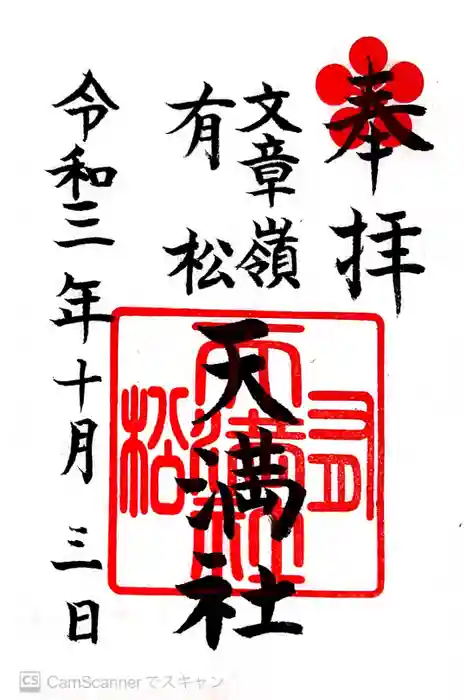 奉拝
文章嶺
有松
天満社
有松天満社
令和三年十月三日
CS CamScannerでスキャン